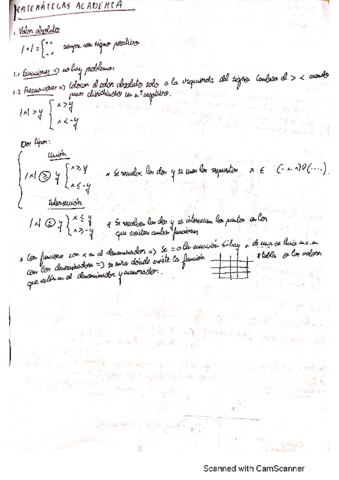 MATEMÁTICAS ACADEMIA
1. Valor absoluto
|x| = { +x -x siempre con signo positivo
1.1 Ecuaciones => no hay problema
1.2 Inecuaciones => colocar el valor absoluto solo a la izquierda del signo. Cambiar el > < cuando
pase dividiendo un nº negativo.
|x| > y { x > y
x < -y
Dos tipos:
Unión
|x| ≥ y { x ≥ y
x ≤ -y
* Se resuelve los dos y se unen las respuestas x ∈ (-∞, x) U (...)
Intersección
|x| ≤ y { x ≤ y
x ≥ -y
* Se resuelven los dos y se intersecan los puntos en los
que existen ambas funciones
* Con funciones con x en el denominador => Se = 0 la ecuación si hay + de una se hace m.c.m
con los denominadores => se mira dónde existe la función
* tabla con los valores
que están en el denominador y numerador.
Scanned with CamScanner